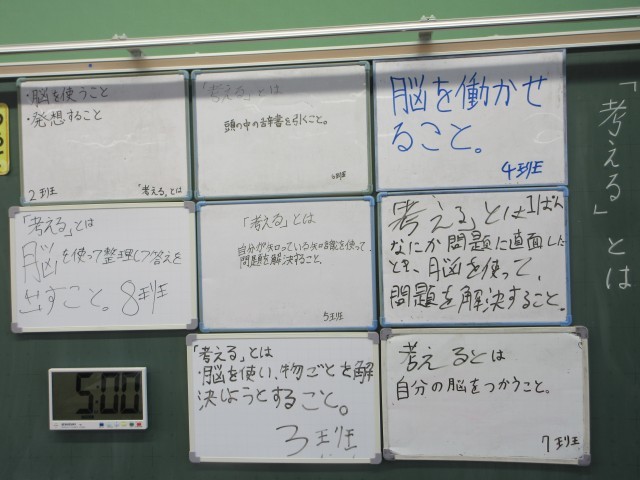 「考える」とは
・脳を使うこと
・発想すること
2班
「考える」とは
「考える」とは
頭の中の辞書を引くこと。
6班
脳を働かせ
ること。
4班
「考える」とは
脳を使って整理して答えを
出すこと。8班
「考える」とは
自分が知っている知識を使って、
問題を解決すること。
5班
「考える」とは 1ぱん
なにか問題に直面した
とき、脳を使って、
問題を解決すること。
「考える」とは
・脳を使い、物ごとを解
決しようとすること。
3班
考えるとは
自分の脳をつかうこと。
7班
5:00